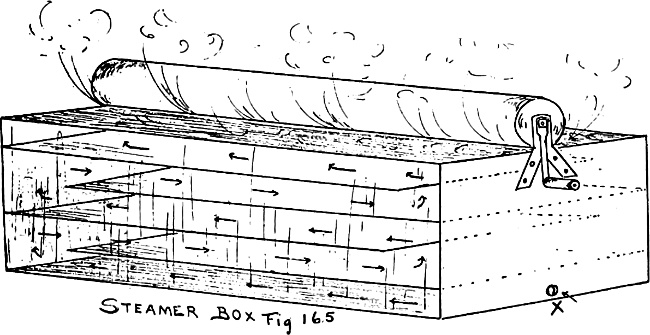 X
STEAMER BOX Fig 16.5